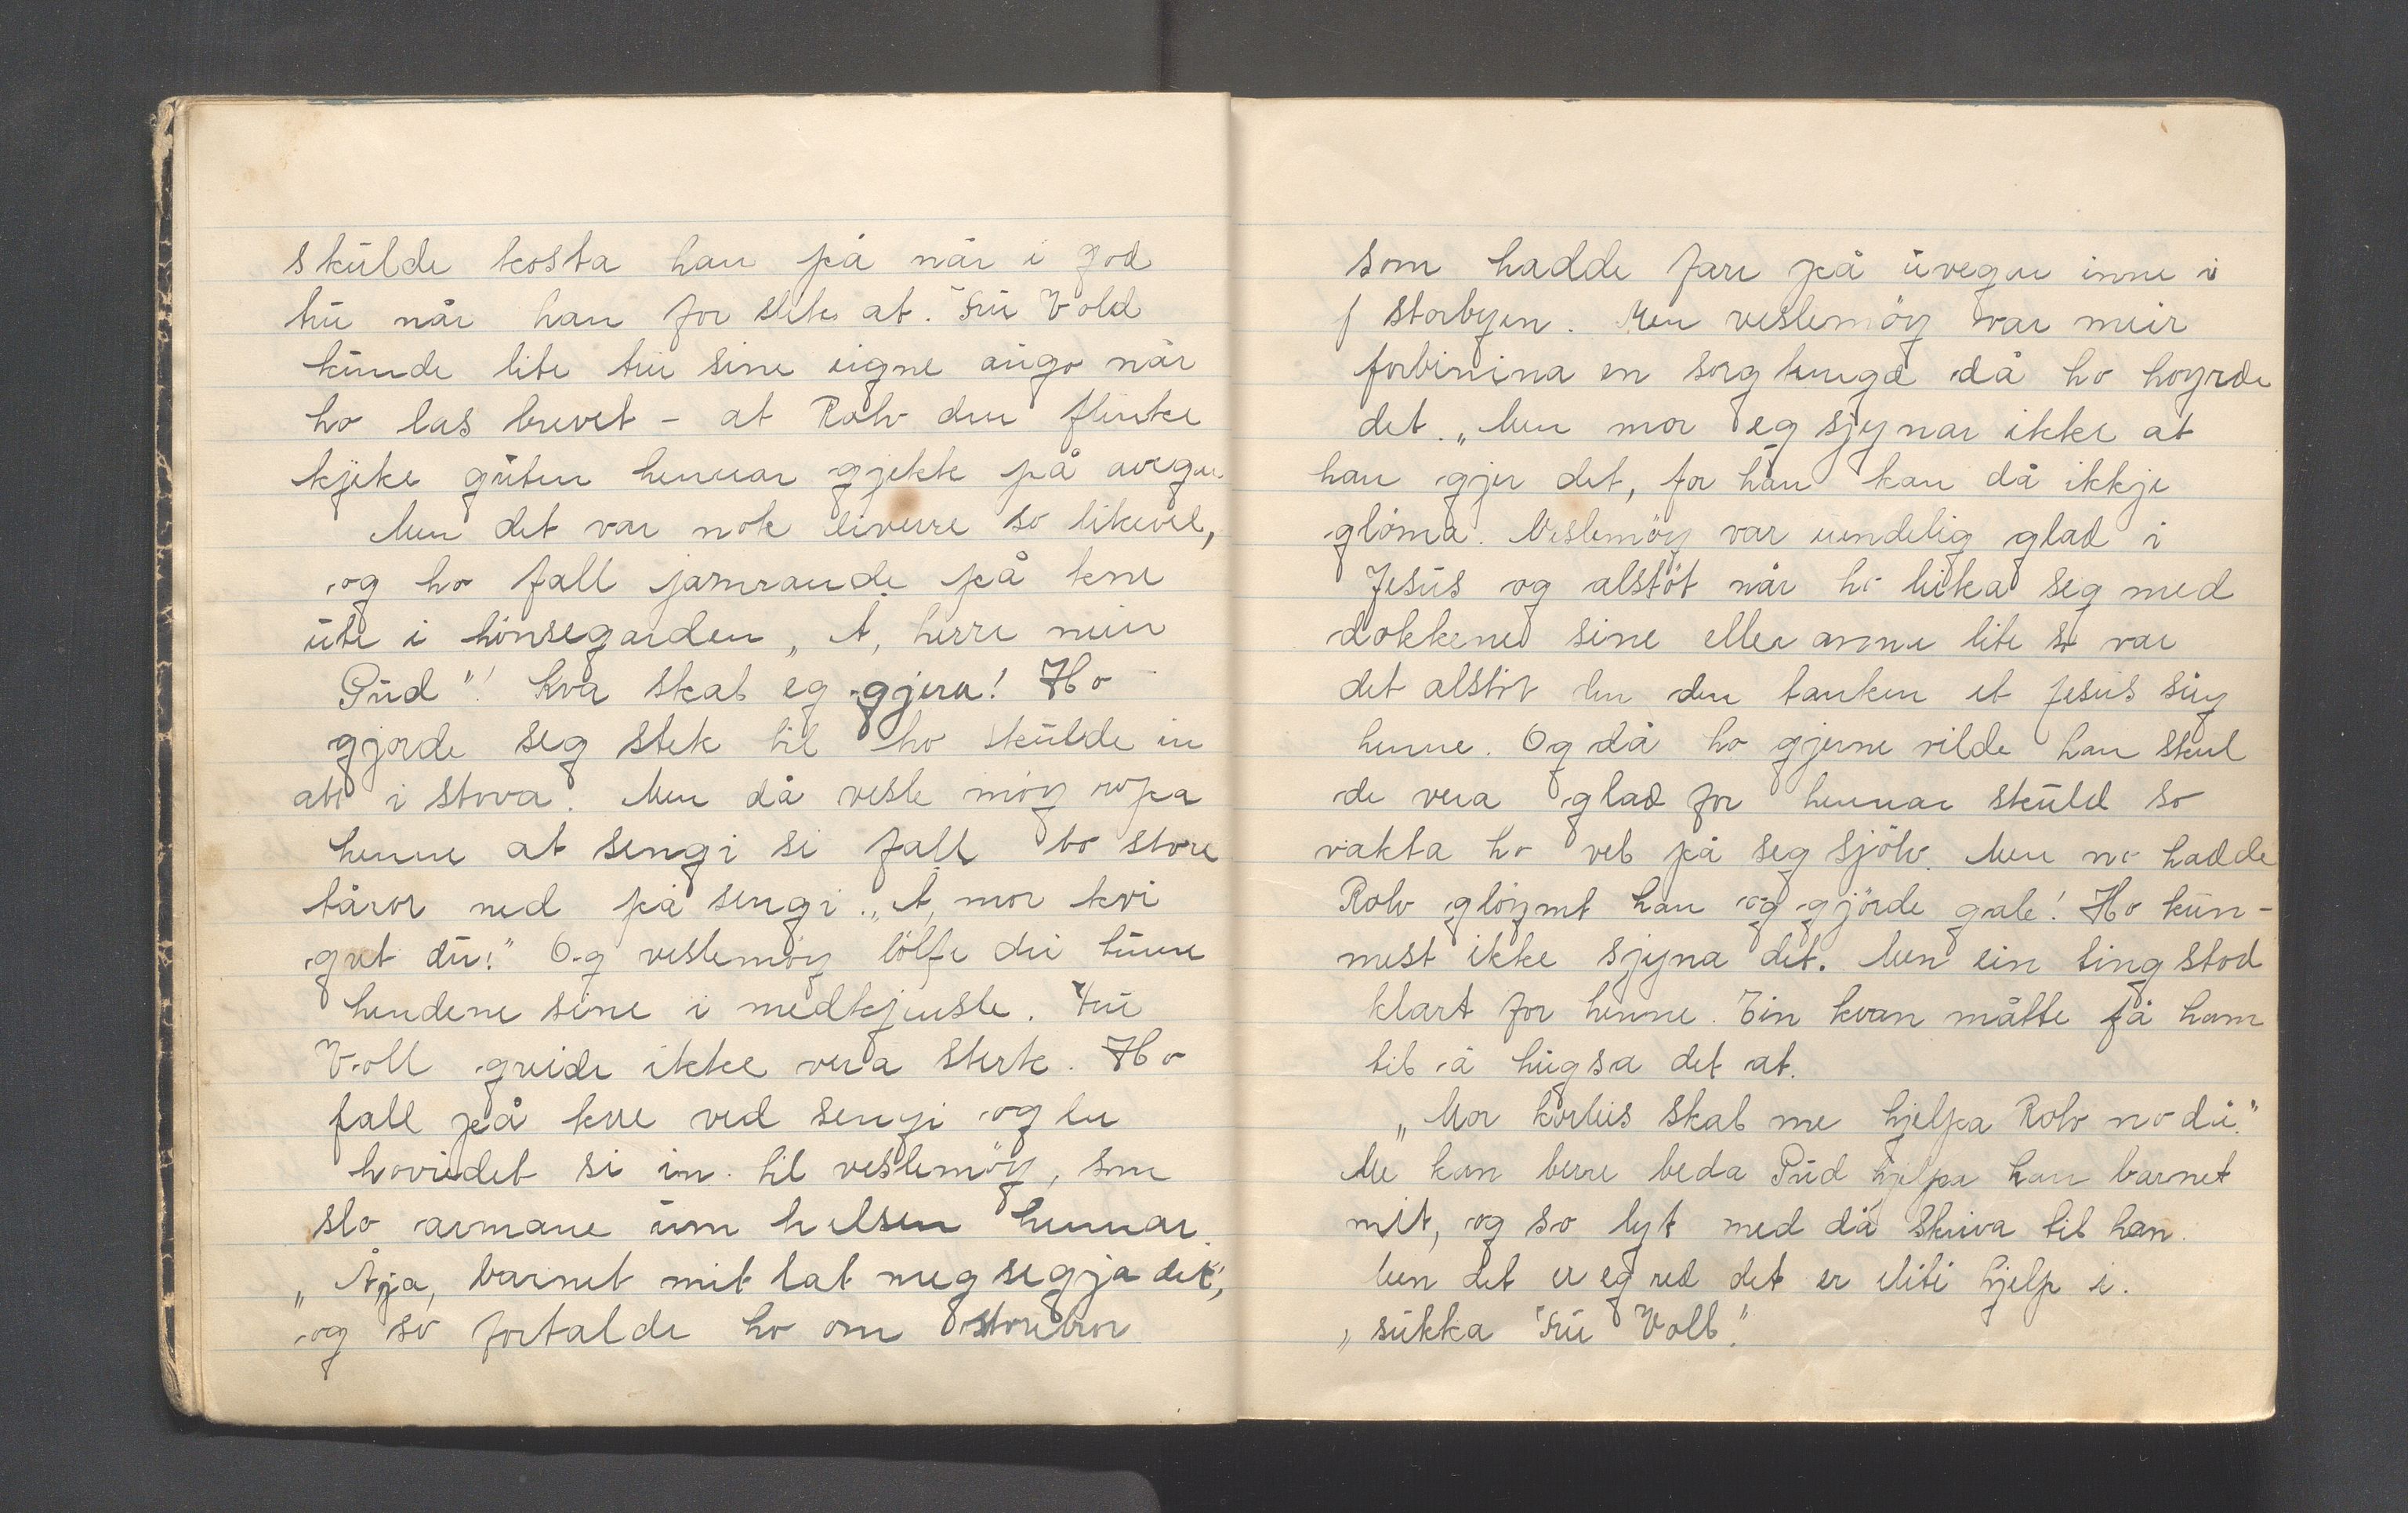 skulde kosta han på når i god
tru når han for slik at. Fru Vold
kunde lite tru sine eigne augo når
ho las brevet - at Rolv den flinke
kjeke guten hennar gjekk på avegar
Men det var nok diverre so likevel,
og ho fall jamrande på kne
ute i hönsegarden „Å, herre min
Gud"! Kva skal eg gjera! Ho
gjorde seg stek til ho skulde in
att i stova. Men då vesle möy ropa
henne at sengi si fall to store
tåror ned på sengi. „Å, mor kvi
gret du!" Og veslemöy lölfte dei tunne
hendene sine i medkjensle. Fru
Voll greide ikke vera sterk. Ho
fall på kne ved sengi og la
hovudet si in til veslemöy, som
slo armane um halsen hennar.
„Åja, barnet mit lat meg segja det",
og so fortalde ho om storebror
som hadde fare på uvegar inne i
storbyen. Men veslemöy var meir
forbinina en sorg tengd då ho hoyrde
det. „Men mor eg sjynar ikke at
han gjer det, for han kan då ikkje
glöma. Veslemöy var uendelig glad i
Jesus og alstöt når ho leika seg med
dokkene sine eller anna lite so var
det alstöt den den tanken at Jesus såg
henne. Og då ho gjerne vilde han skul
de vera glad for hennar skuld so
vakta ho vel på seg sjölv. Men no hadde
Rolv glöymt han og gjörde gale! Ho kun-
mest ikke sjyna det. Men ein ting stod
klart for henne. Ein kvan måtte få ham
til å hugsa det at.
„Mor korleis skal me hjelpa Rolv no då."
Me kan berre beda Gud hjelpa han barnet
mit, og so lyt med då skriva til han.
Men det er eg red det er liti hjelp i.
„sukka Fru Voll."